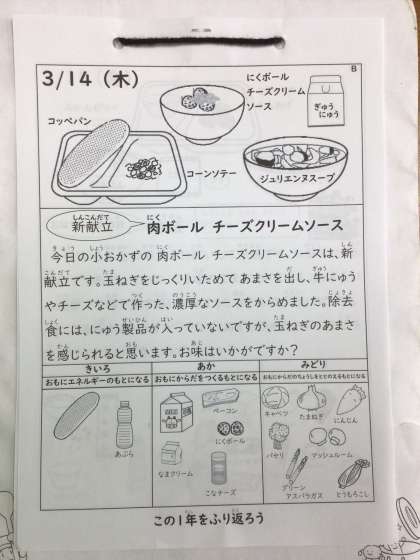 B
3/14（木）
にくボール
チーズクリーム
ソース
ぎゅう
にゅう
コッペパン
コーンソテー
ジュリエンヌスープ
新献立 肉ボール チーズクリームソース
今日の小おかずの 肉ボール チーズクリームソースは、新
献立です。玉ねぎをじっくりいためて あまさを出し、牛にゅう
やチーズなどで作った、濃厚なソースをからめました。除去
食には、にゅう製品が入っていないですが、玉ねぎのあまさ
を感じられると思います。お味はいかがですか？
きいろ
あか
みどり
おもにエネルギーのもとになる
おもにからだをつくるもとになる
おもにからだのちょうしをととのえるもとになる
ベーコン
キャベツ
たまねぎ
にんじん
にくボール
あぶら
パセリ
マッシュルーム
なまクリーム
こなチーズ
グリーン
アスパラガス
とうもろこし
この1年をふり返ろう